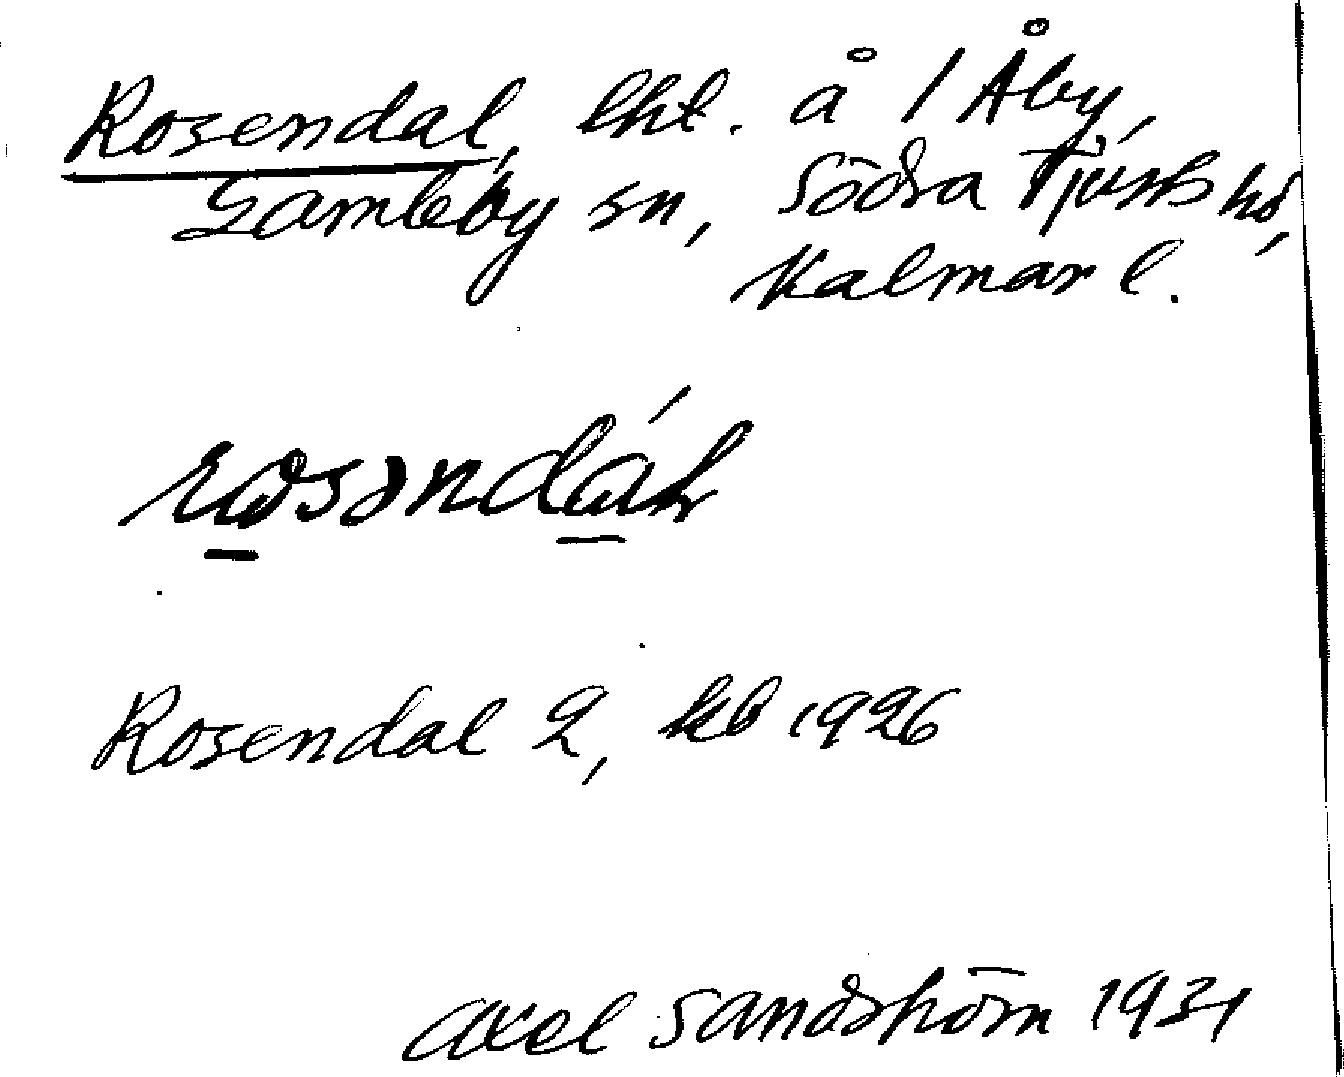 Rosendal, lht. å 1 Åby,
Gamleby sn, Södra Tjusts hd,
Kalmar l.
rosəndáh
Rosendal 2, kb 1926
Axel Sandström 1931